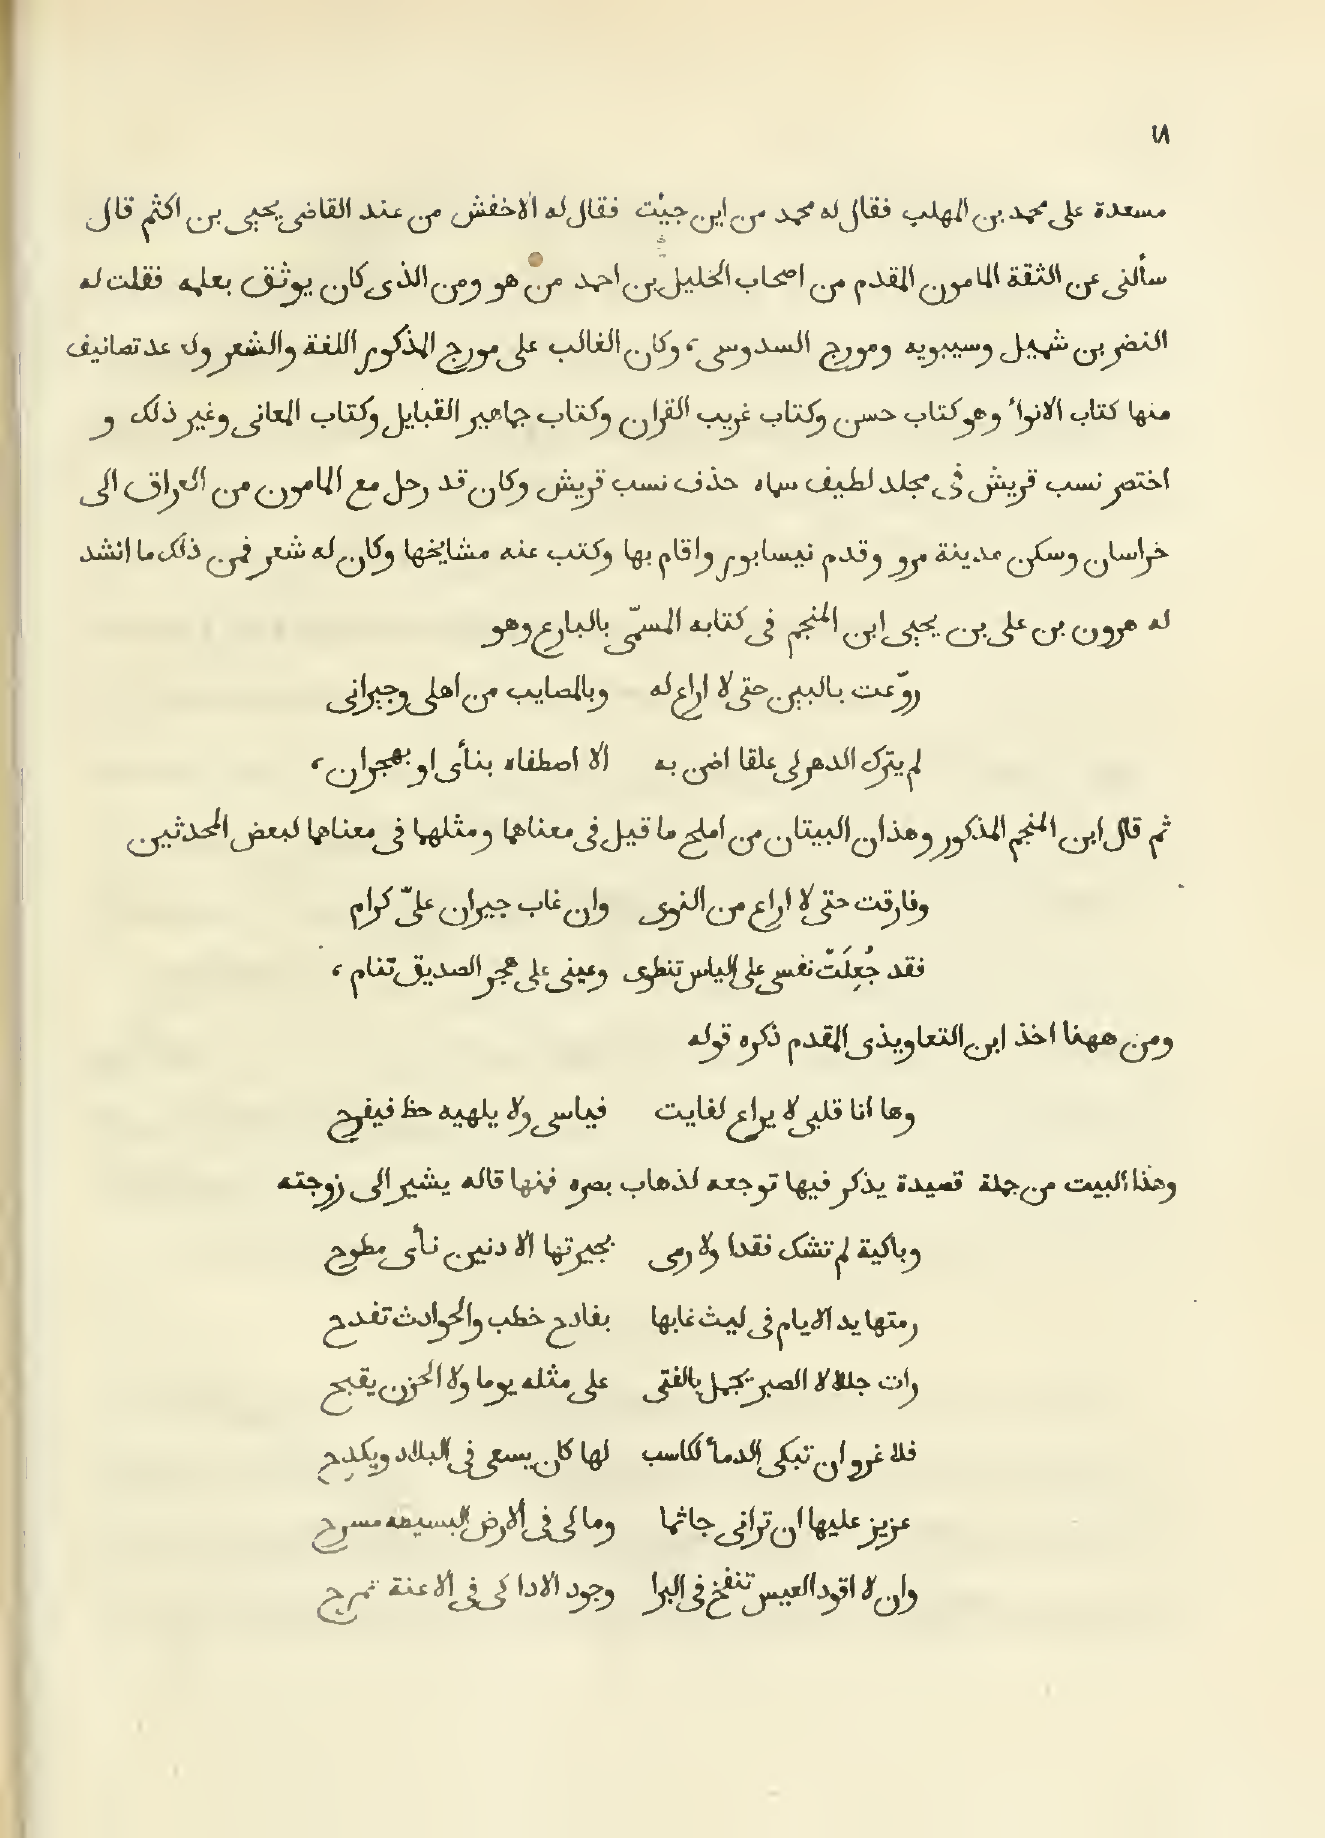 ٦٨
مسعدة على محمد بن المهلب فقال له محمد من اين جئت فقال له الاخفش من عند القاضى يحيى بن اكثم قال
سألنى عن الثقة المامون المقدم من اصحاب الخليل بن احمد من هو ومن الذى كان يوثق بعلمه فقلت له
النضر بن شميل وسيبويه ومورج السدوسى ، وكان الغالب على مورج المذكور اللغة والشعر وله عدة تصانيف
منها كتاب الانواء وهو كتاب حسن وكتاب غريب القران وكتاب جماهير القبايل وكتاب المعانى وغير ذلك و
اختصر نسب قريش فى مجلد لطيف سماه حذف نسب قريش وكان قد رحل مع المامون من العراق الى
خراسان وسكن مدينة مرو وقدم نيسابور واقام بها وكتب عنه مشايخها وكان له شعر فمن ذلك ما انشد
له هرون بن على بن يحيى ابن المنجم فى كتابه المسمّى بالبارع وهو
روّعت بالبين حتى لا اراع له وبالمصايب من اهلى وجيرانى
لم يترك الدهر لى علقا اضن به الا اصطفاه بنأى او بهجران ،
ثم قال ابن المنجم المذكور وهذان البيتان من املح ما قيل فى معناهما ومثلهما فى معناهما لبعض المحدثين
وفارقت حتى لا اراع من النوى وان غاب جيران علىّ كرام
فقد جُعِلَتْ نفسى على الياس تنطوى وعينى على هجر الصديق تنام ،
ومن ههنا اخذ ابن التعاويذى المقدم ذكره قوله
وها انا قلبى لا يراع لفايت فياسى ولا يلهيه حظ فيفرح
وهذا البيت من جملة قصيدة يذكر فيها توجعه لذهاب بصره فمنها قاله يشير الى زوجته
وباكية لم تشك فقدا ولا رمى بجيرتها الادنين نأى مطوح
رمتها يد الايام فى ليث غابها بفادح خطب والحوادث تفدح
رات جللا لا الصبر يجمل بالفتى على مثله يوما ولا الحزن يقبح
فلا غرو ان تبكى الدمأ لكاسب لها كان يسعى فى البلاد ويكدح
عزيز عليها ان ترانى جاثما وما لى فى الارض البسيطه مسرح
وان لا اقود العيس تنفخ فى البرا وجود الاداكى فى الاعنة تمرح